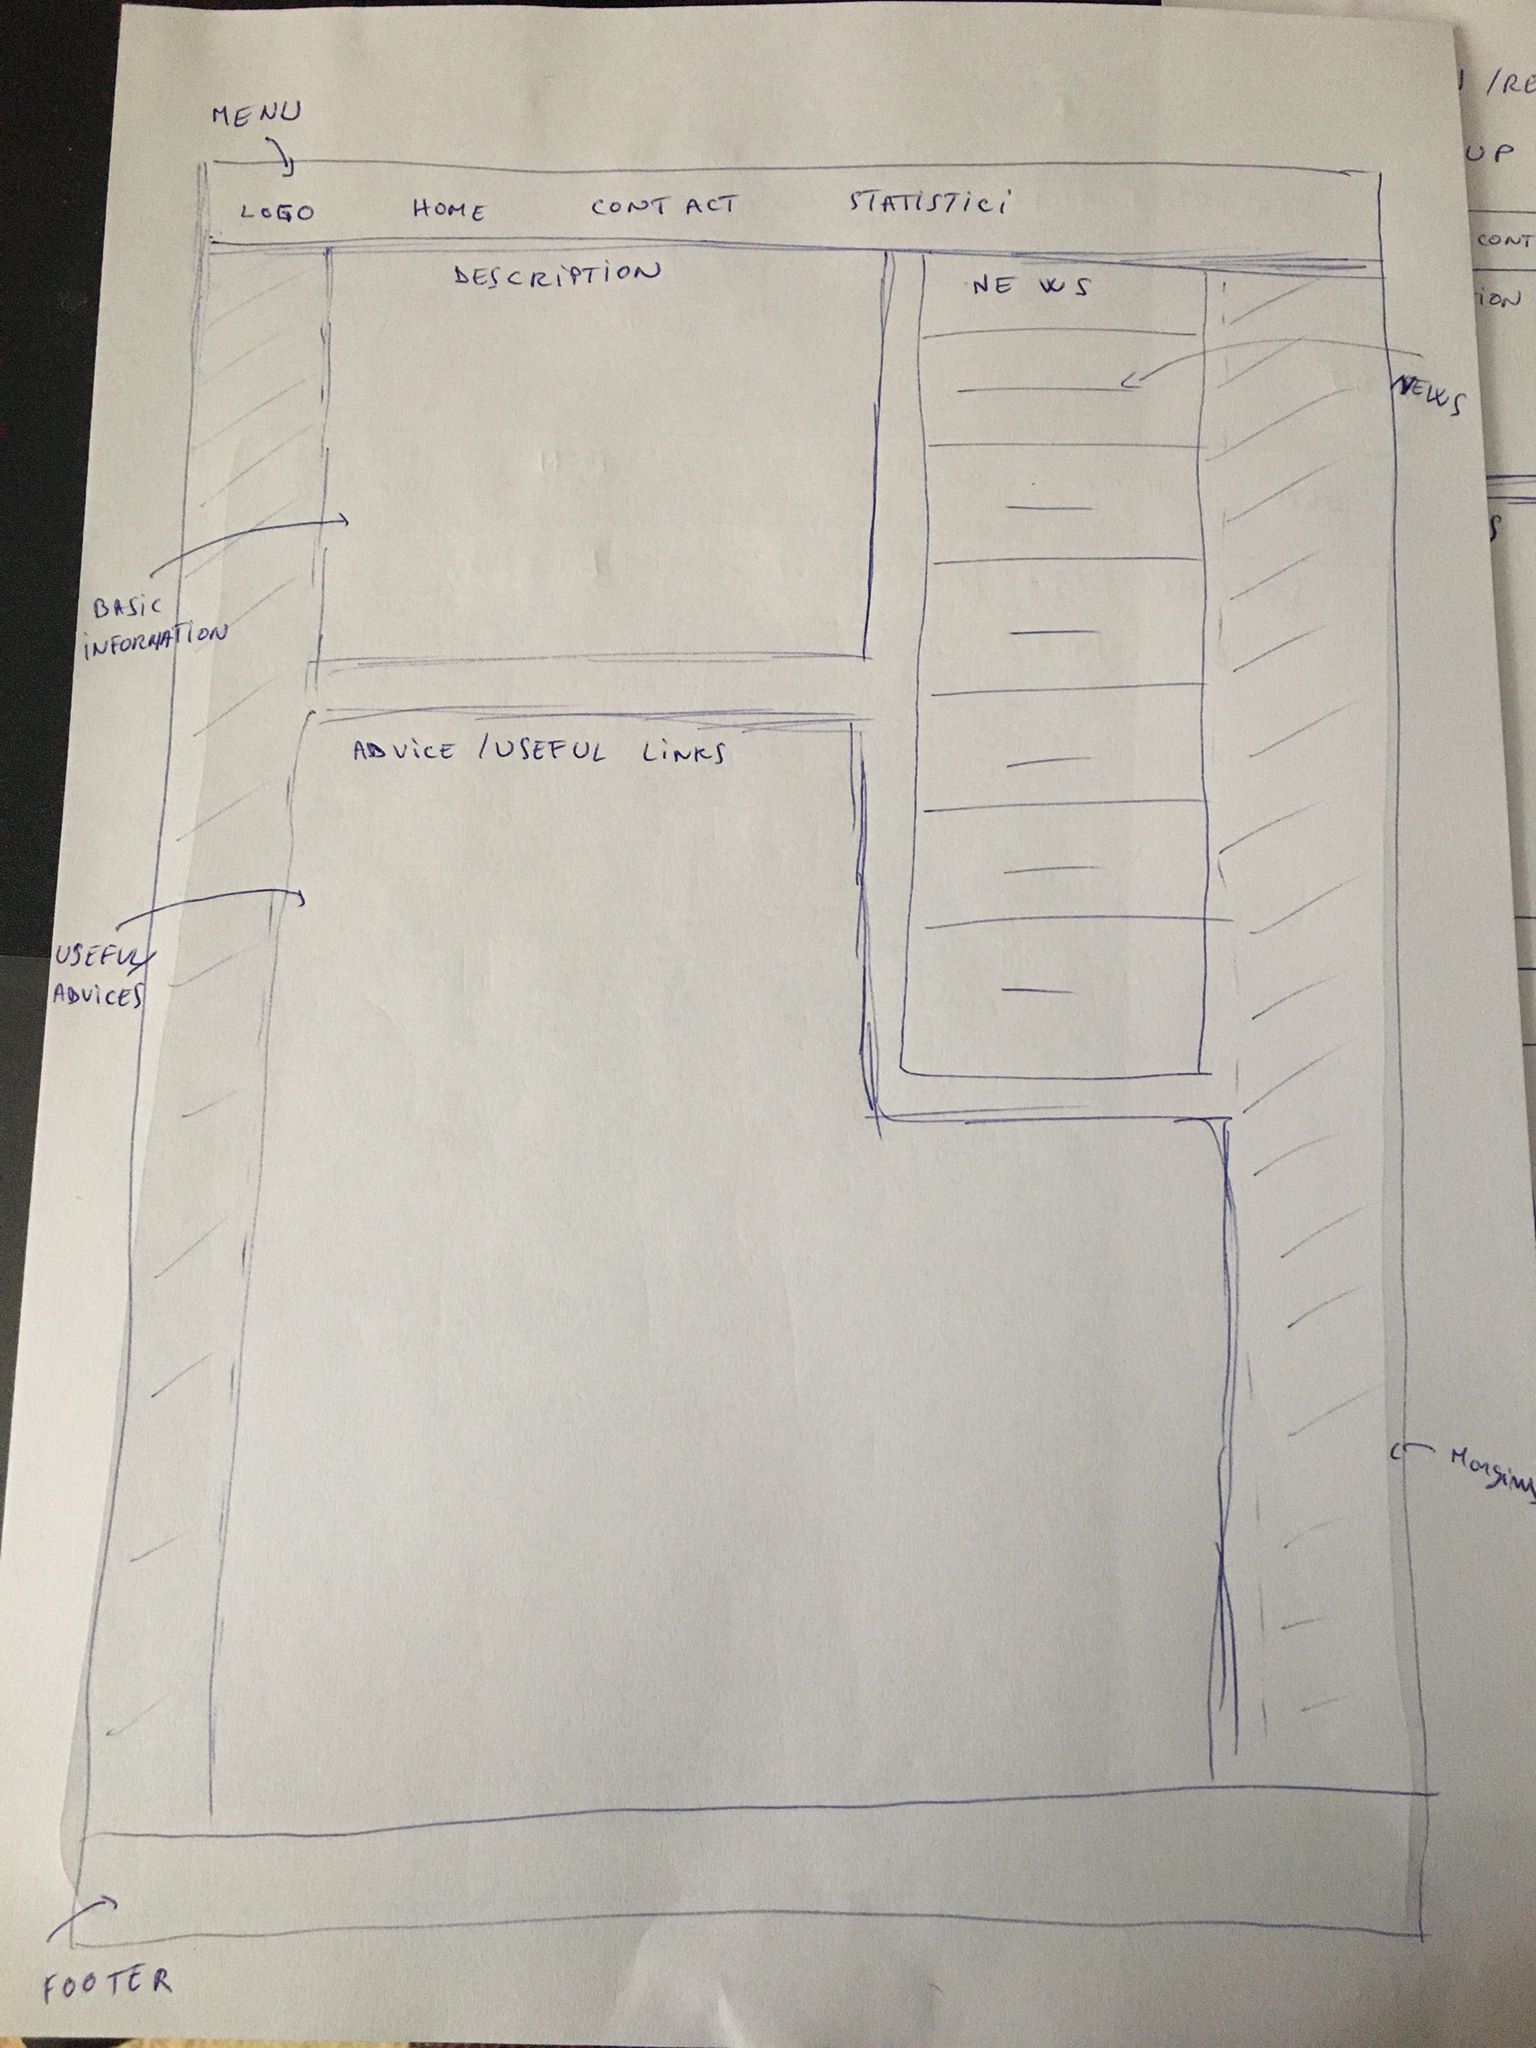 MENU
LOGO HOME CONTACT STATISTICI
DESCRIPTION
NEWS
NEWS
BASIC
INFORMATION
ADVICE / USEFUL LINKS
USEFUL
ADVICES
Margins
FOOTER
/RE
UP
CONT
ION
S